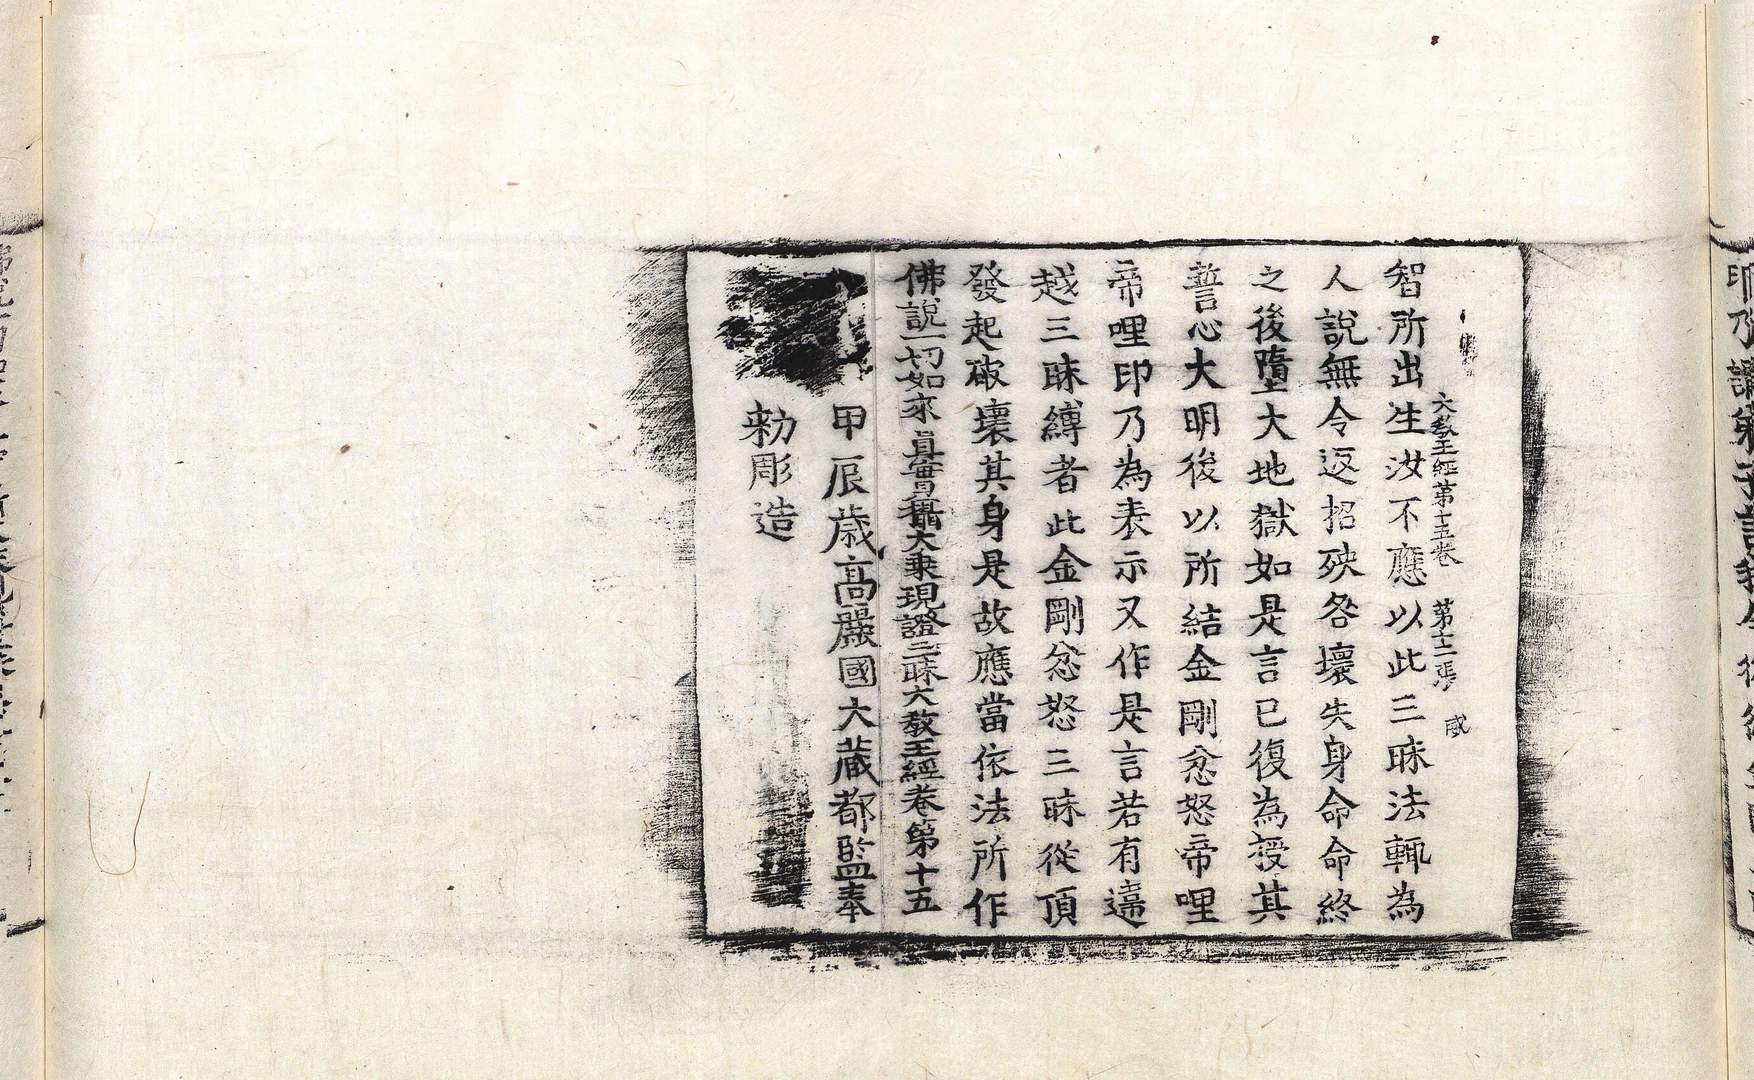 大教王經第十五卷 第十二張
智所出生汝不應以此三昧法輒為
人說無令返招殃咎壞失身命命終
之後墮大地獄如是言已復為授其
誓心大明後以所結金剛忿怒帝哩
帝哩印乃為表示又作是言若有違
越三昧縛者此金剛忿怒三昧從頂
發起破壞其身是故應當依法所作
佛說一切如來真實攝大乘現證三昧大教王經卷第十五
甲辰歲高麗國大藏都監奉
勅彫造